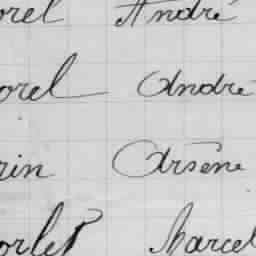 orel André
orel André
rin Arsène
orlet Marcel